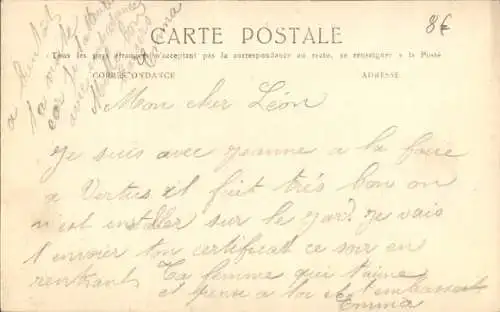 CARTE POSTALE
8€
Tous les pays étrangers n'acceptant pas la correspondance au recto, se renseigner à la Poste
CORRESPONDANCE
ADRESSE
Mon cher Léon
Je suis avec Jeanne a la foire
a Vertus il fiet très bon on
n'est enstaller sur le Jard Je vais
t'envoier ton certificat ce soir en
rentrant Ta femme qui t'aime
et pense a toi et t'embrasse
Emma
a bientot
car